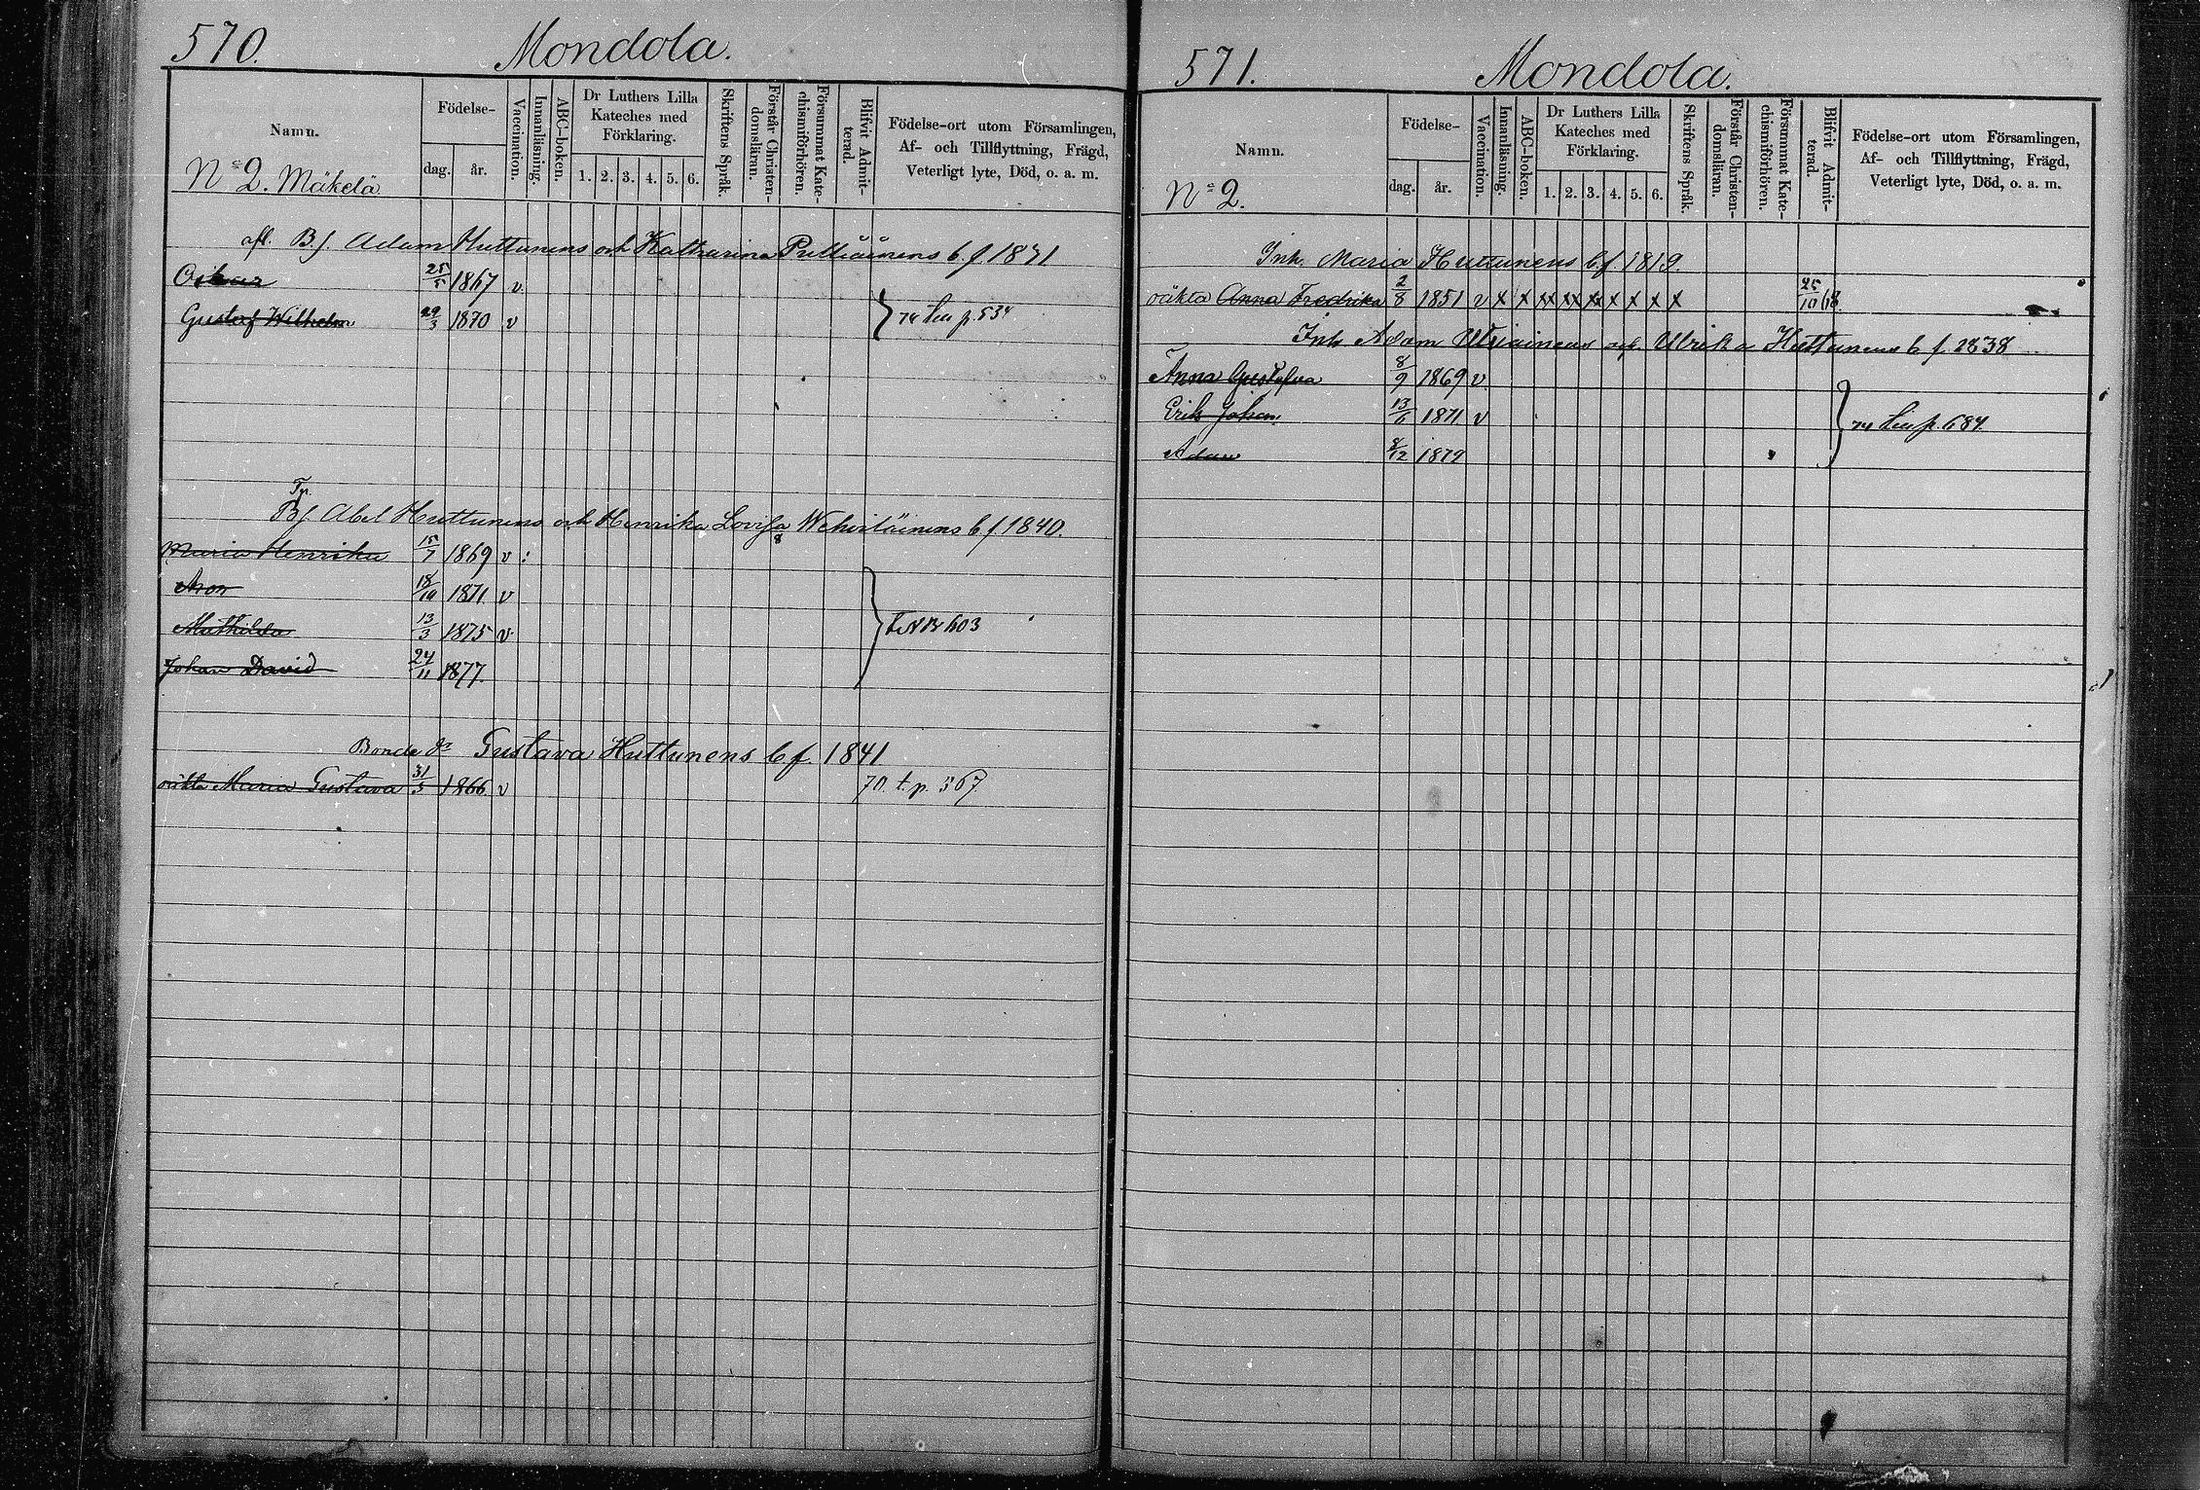 570.
Mondola.
Namn.
Födelse-
dag. år.
Vaccination.
Innanläsning.
ABC-boken.
Dr Luthers Lilla
Kateches med
Förklaring.
1. 2. 3. 4. 5. 6.
Skriftens Språk.
Förstår Christen-
domsläran.
Försummat Kate-
chismiförhören.
Blifvit Admit-
terad.
Födelse-ort utom Församlingen,
Af- och Tillflyttning, Frägd,
Veterligt lyte, Död, o. a. m.
N:o 2. Mäkelä
afl. B.f. Adam Huttunens och Katharina b.f. 1831
Oskar 25/5 1867 v.
Gustaf Wilhelm 29/3 1870 v
p. 534
Tp.
Bf. Abel Huttunens och Henrika Lovisa Wehviläinens b.f. 1840.
Maria Henrika 15/7 1869 v
Aron 18/10 1871. v
Mathilda 13/3 1875 v
Johan David 24/11 1877.
603
Bonde dr Gustava Huttunens b.f. 1841
oäkta Maria Gustava 31/5 1866. v 70. t. p. 367.
571.
Mondola.
Namn.
Födelse-
dag. år.
Vaccination.
Innanläsning.
ABC-boken.
Dr Luthers Lilla
Kateches med
Förklaring.
1. 2. 3. 4. 5. 6.
Skriftens Språk.
Förstår Christen-
domsläran.
Försummat Kate-
chismiförhören.
Blifvit Admit-
terad.
Födelse-ort utom Församlingen,
Af- och Tillflyttning, Frägd,
Veterligt lyte, Död, o. a. m.
N:o 2.
Inh. Maria Huttunens b.f. 1819.
oäkta Anna Fredrika 2/8 1851 v x x xx xx xx x x x x 25/10 68.
Inh Adam och Ulrika Huttunens b.f. 1838
Anna Gustafva 8/9 1869 v.
Erik Johan. 13/6 1871. v
Adam 8/12 1872
p. 684.